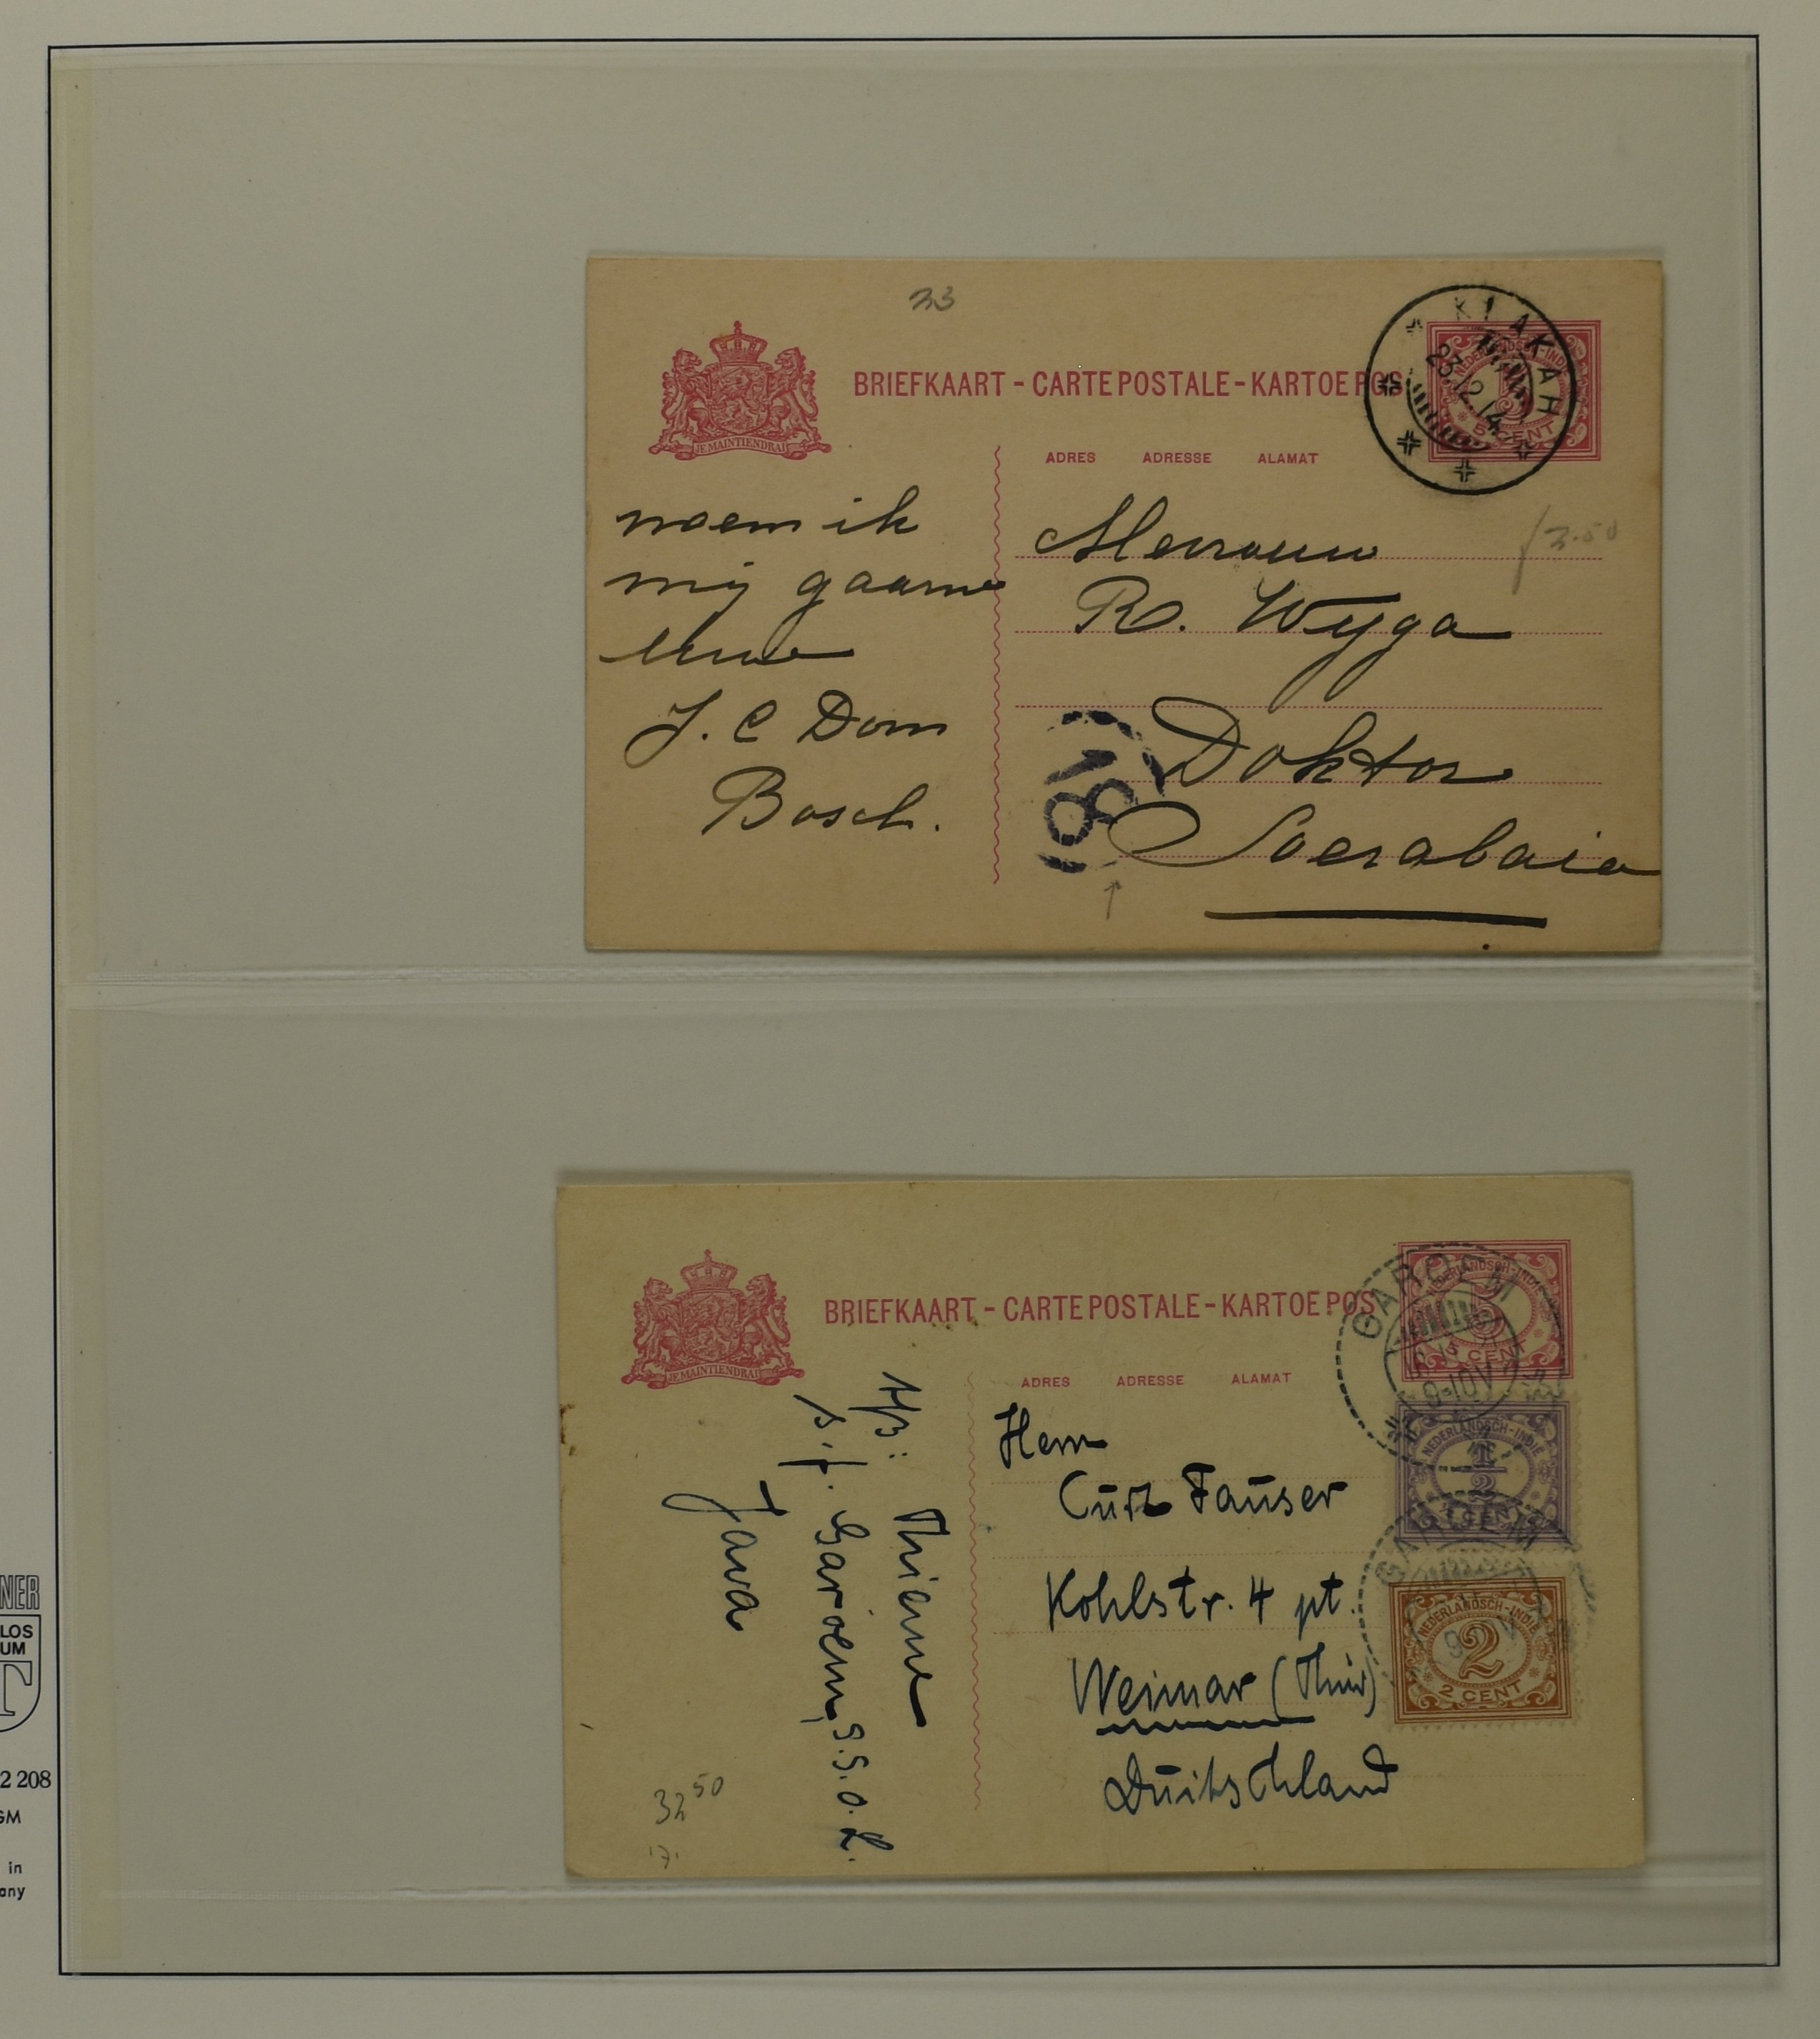 33
BRIEFKAART - CARTE POSTALE - KARTOE POS
KLAKAH
23.12.14
NEDERLANDSCH-INDIE
5 CENT
JE MAINTIENDRAI
ADRES ADRESSE ALAMAT
noem ik
mij gaarne
Uwe
J. C Dom
Bosch.
Mevrouw
R. Wyga
Doktor
Soerabaia
18
BRIEFKAART - CARTE POSTALE - KARTOE POS
GAROET
NEDERLANDSCH-INDIE
5
5 CENT
JE MAINTIENDRAI
ADRES ADRESSE ALAMAT
NEDERLANDSCH-INDIE
1/2
1/2 CENT
NEDERLANDSCH-INDIE
2
2 CENT
Herrn
Curt Fauser
Kohlstr. 4 pt.
Weimar (Thür)
Duitschland
Afs: Thieme
p.f. Garoem, S.S.O.L.
Java
32 50
NER
LOS
UM
T
2 208
GM
in
any